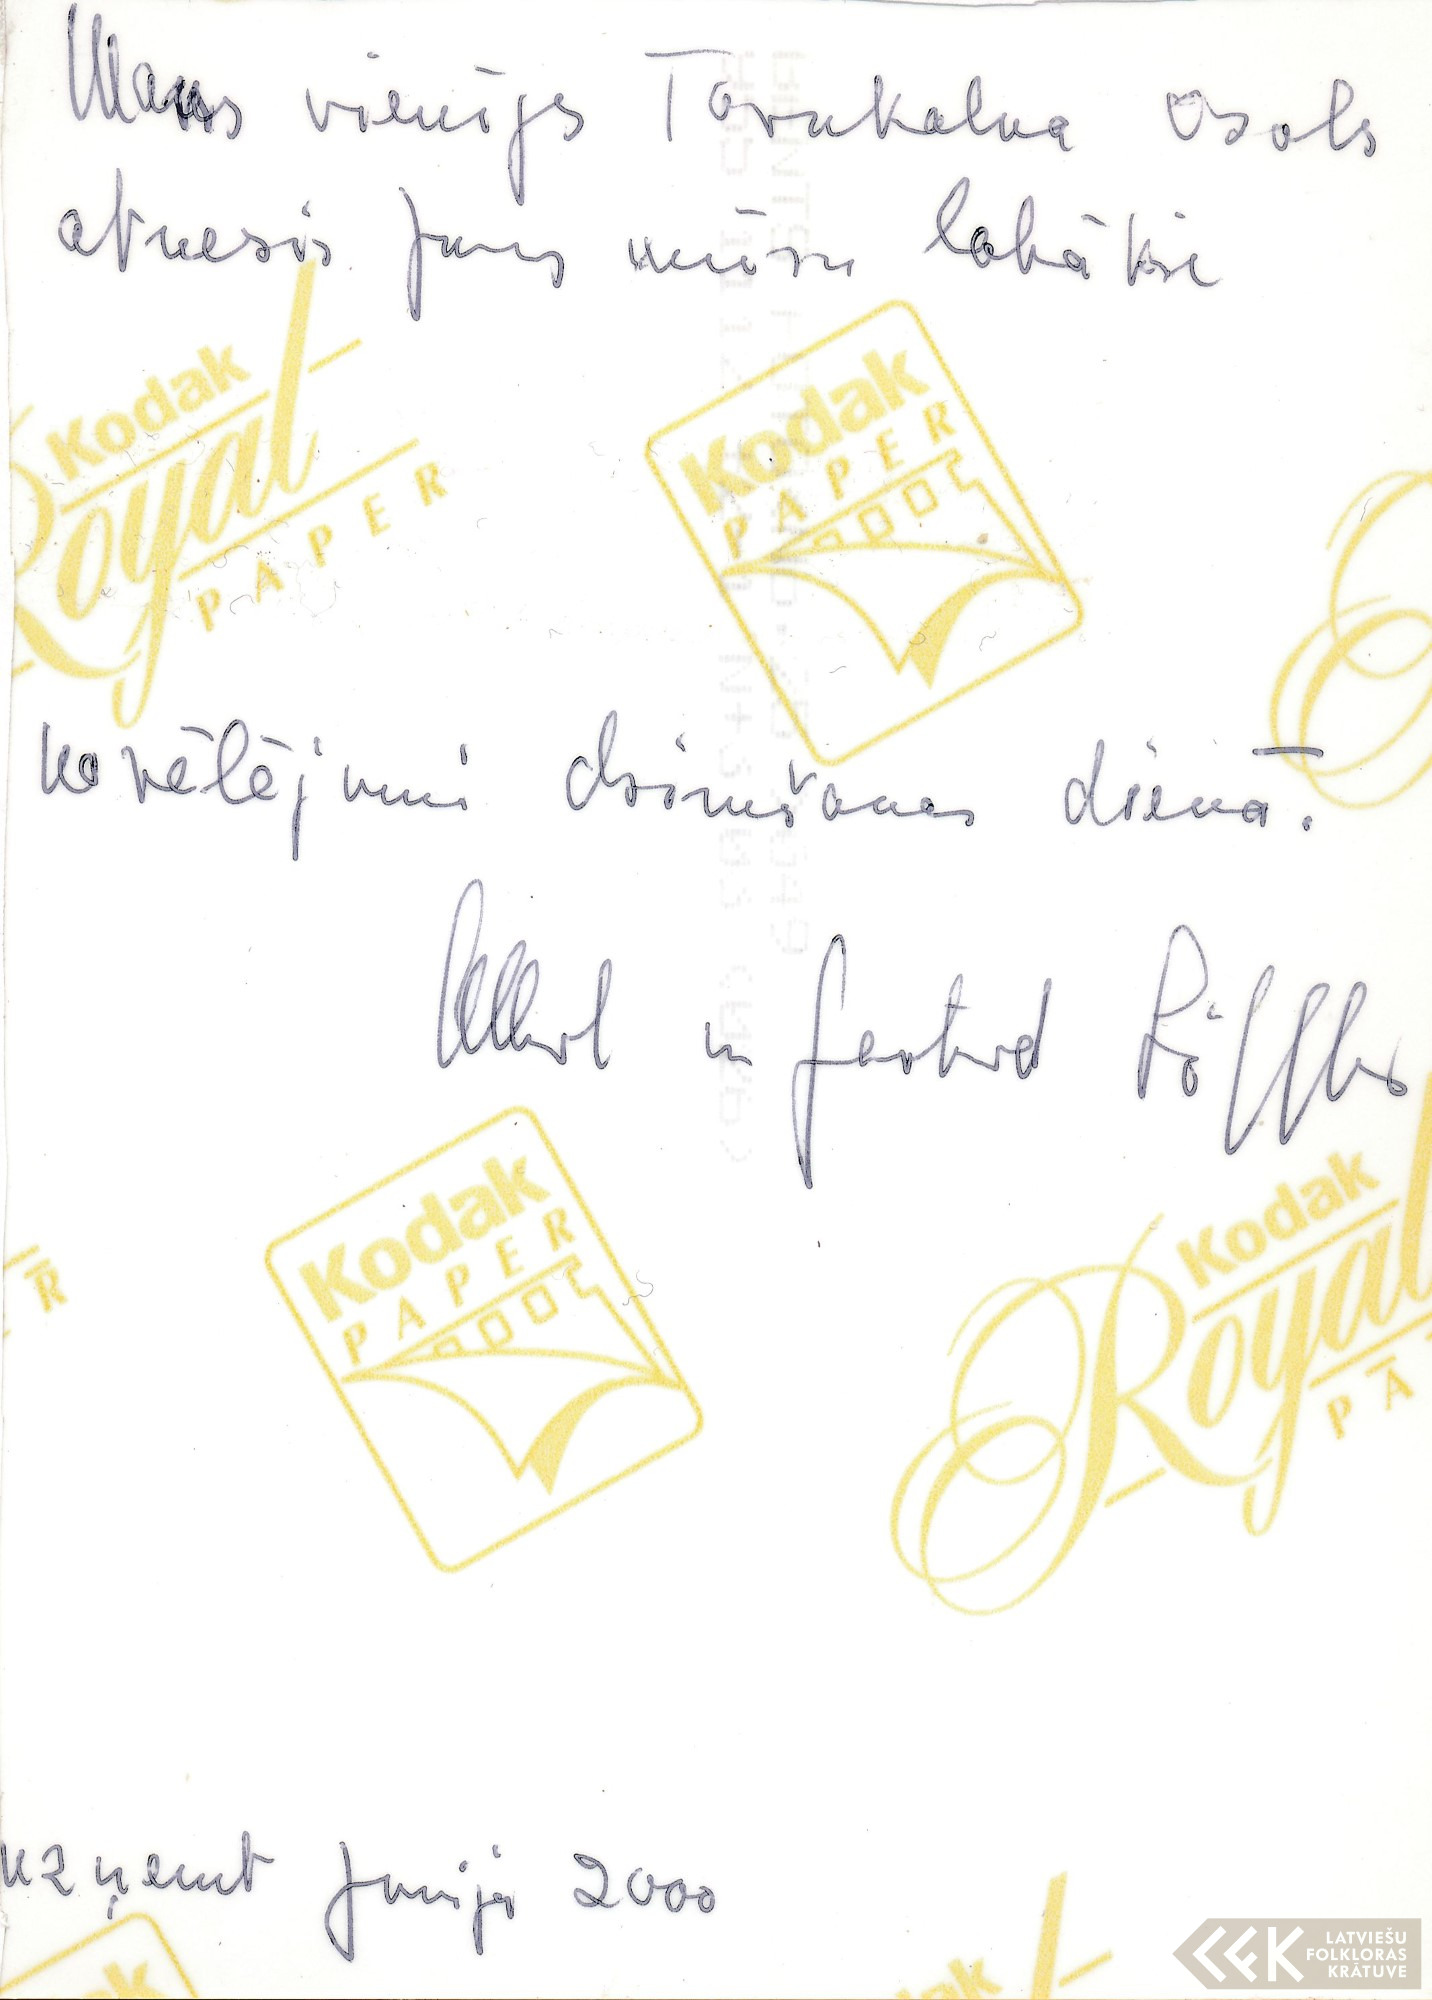 Mans vienīgs Tornukalna ozols
atnesis Jums mūsu labākie
Kodak
Royal
PAPER
Kodak
PAPER
novēlējumi dzimšanas dienā.
un Gertrud Löffler
Kodak
PAPER
Kodak
Royal
PA
R
uzņemt Junijā 2000
LATVIEŠU
FOLKLORAS
KRĀTUVE